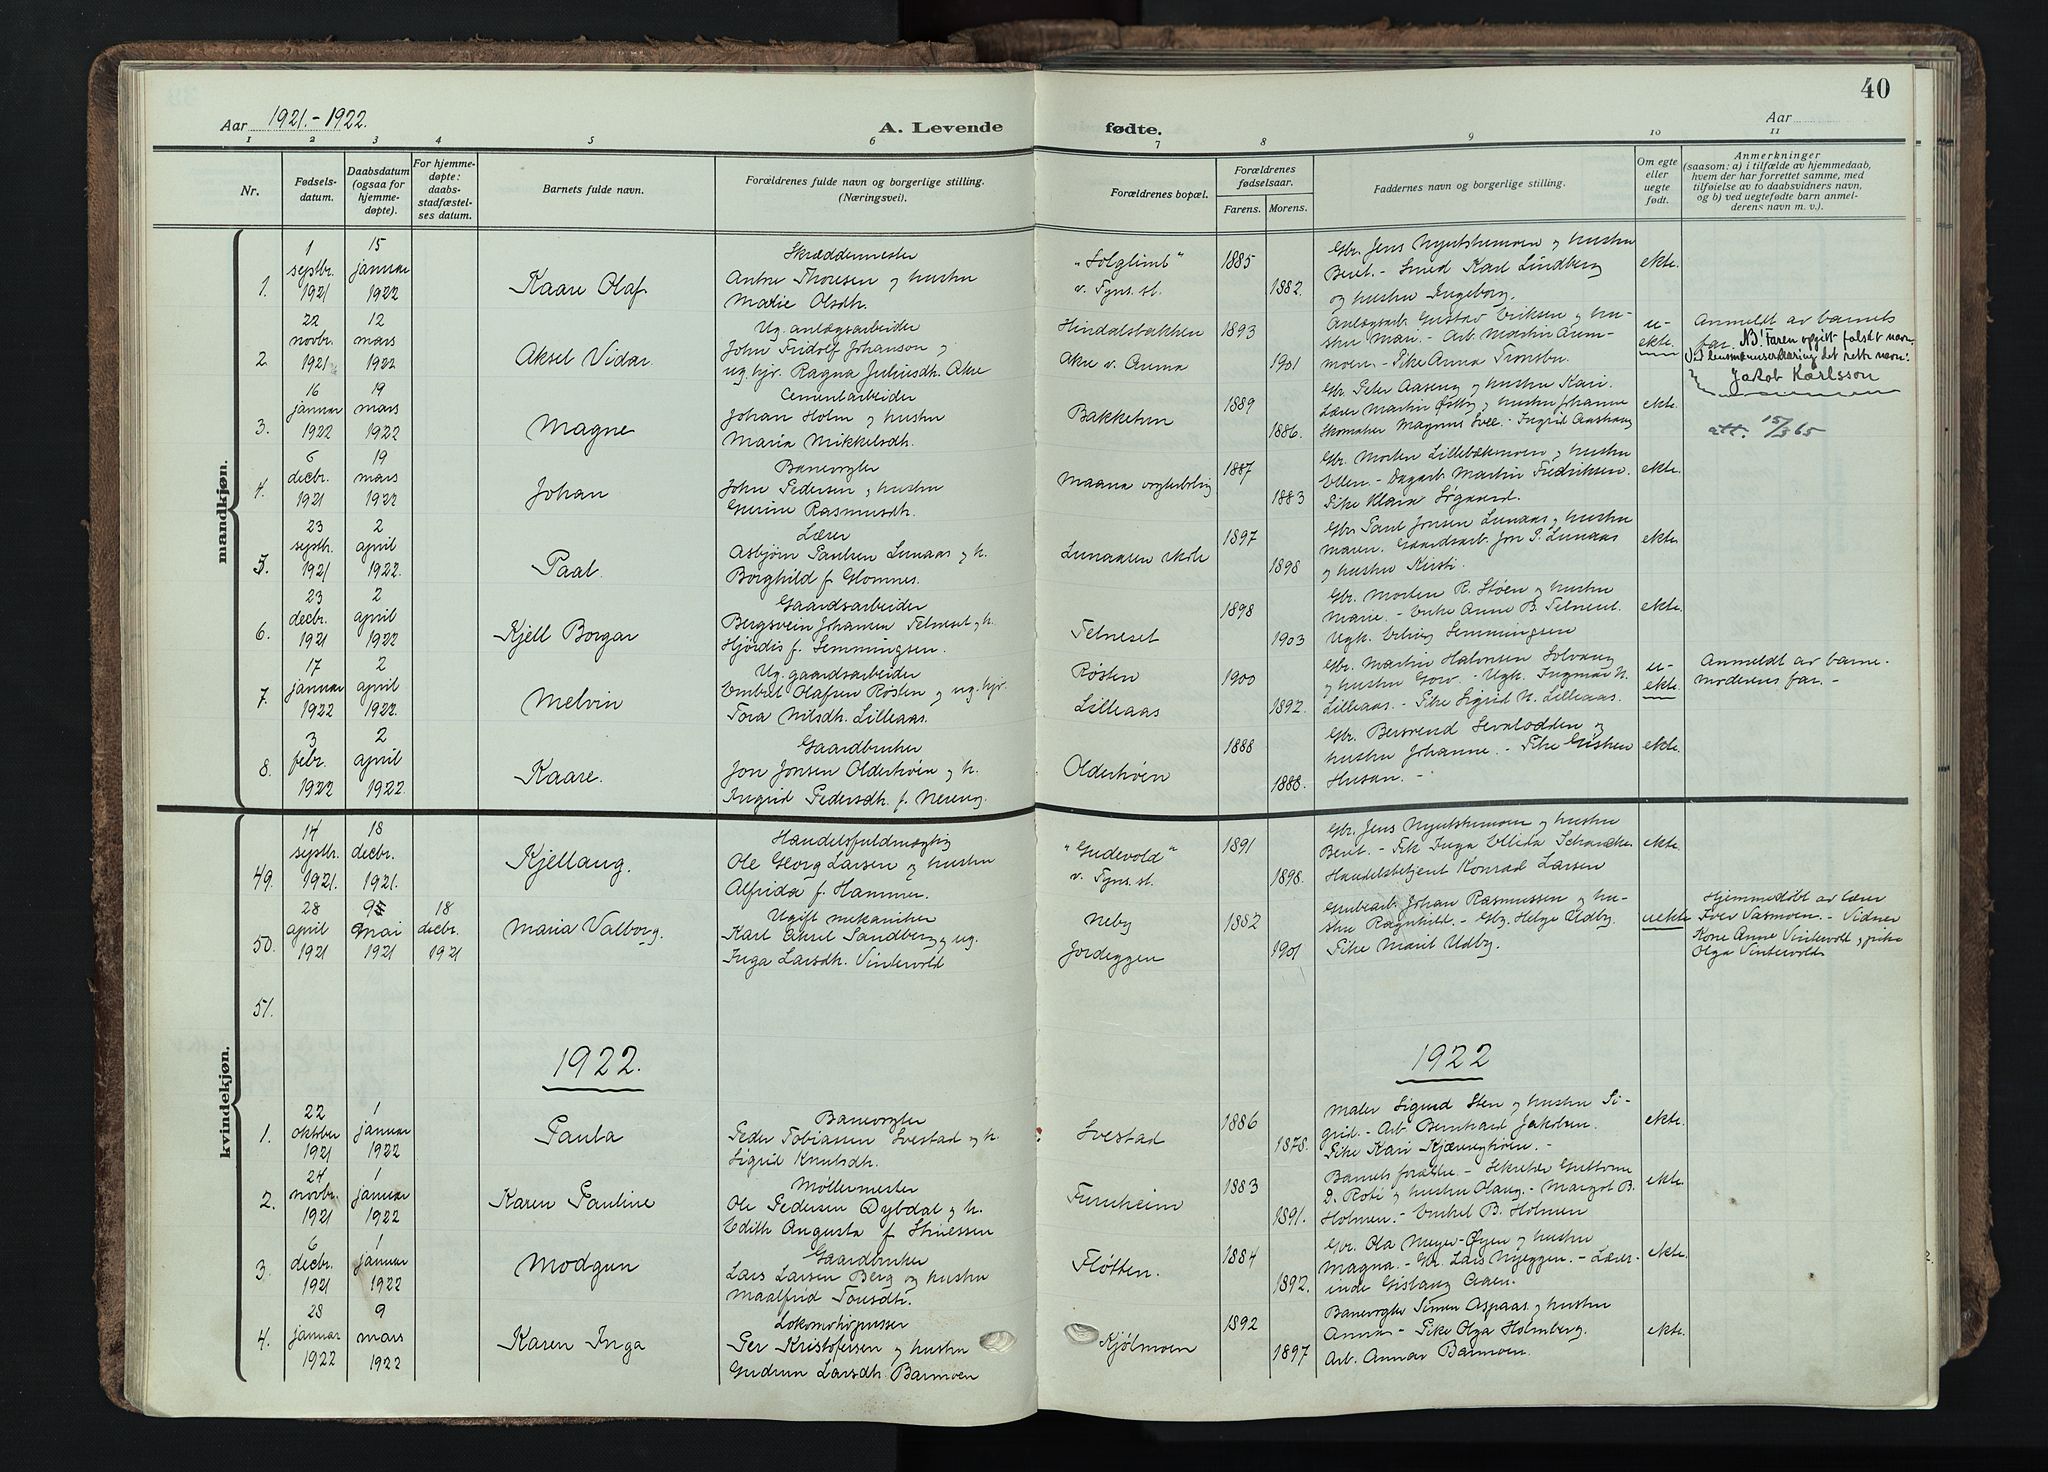 40
Aar 1921.-1922.
A. Levende
fødte.
Aar
1 2 3 4 5 6 7 8 9 10 11
Nr.
Fødsels-
datum.
Daabsdatum
(ogsaa for
hjemme-
døpte).
For hjemme-
døpte:
daabs-
stadfæstel-
ses datum.
Barnets fulde navn.
Forældrenes fulde navn og borgerlige stilling.
(Næringsvei).
Forældrenes bopæl.
Forældrenes
fødselsaar.
Farens. Morens.
Faddernes navn og borgerlige stilling.
Om egte
eller
uegte
født.
Anmerkninger
(saasom: a) i tilfælde av hjemmedaab,
hvem der har forrettet samme, med
tilføielse av to daabsvidners navn,
og b) ved uegtefødte barn anmel-
derens navn m. v.).
mandkjøn.
1.
1
septbr.
1921
15
januar
1922
Kaare Olaf
Skræddermester
Thoresen og hustru
Marie Olsdh.
"Solglimt"
v. Tyns. st.
1885
1882.
Gbr. Jens Nyutstumoen og hustru
Berit. - Smed Karl Lindberg
og hustru Ingeborg.
ekte.
2.
22
novbr.
1921
12
mars
1922
Aksel Vidar
Ug. anlægsarbeider
John Fridolf Johanson og
ug. hjr. Ragna Juliusdh. Akre
Hindalsbakken
Akre v. Auma
1893
1901
Anlægsarb. Gustav Eriksen og hu-
stru Mari. - Arb. Martin Aum-
moen. - Pike Anna Tronsbu.
u-
ekte.
Anmeldt av barnets
far. NB! Faren opgitt falsdt navn.
Ved lensmannserklæring det rette navn:
Jakob Karlsson
3.
16
januar
1922
19
mars
1922
Magne
Cementarbeider
Johan Holm og hustru
Maria Mikkelsdh.
Bakketun
1889
1886.
Gbr. Peter Aaseng og hustru Kari.
Lærer Martin Østby og hustru Johanne
Skomaker Magnus Svee. - Ingrid Aashaug
ekte.
att. 15/3 65
4.
6
decbr.
1921
19
mars
1922
Johan
Banevogter
John Pedersen og hustru
Gurine Rasmusdh.
Maana vogterbolig
1887
1883
Gbr. Morten Lillebækmoen og hustru
Ellen. - Dagarb. Martin Fredriksen.
Pike Klara Søgaard.
ekte.
5.
23
septbr.
1921
2
april
1922.
Paal
Lærer
Asbjørn Paulsen Lunaas og h.
Borghild f. Glomnes.
Lunaasen skole
1897
1898
Gbr. Paul Jonsen Lunaas og hustru
Maren. Gaardsarb. Jon P. Lunaas
og hustru Kirsti.
ekte.
6.
23
decbr.
1921
2
april
1922
Kjell Borgar
Gaardsarbeider
Bergsvein Johansen Telneset og h.
Hjørdis f. Semmingsen.
Telneset
1898
1903
Gbr. Morten R. Støen og hustru
Marie. - Enke Anne B. Telneset.
Ugk. Erling Semmingsen
ekte.
7.
17
januar
1922
2
april
1922.
Melvin
Ug. gaardsarbeider
Embret Olafsen Røsten og ug. hjr.
Tora Nilsdh. Lilleaas.
Røsten
Lilleaas
1900
1892.
Gbr. Martin Halvorsen Solvang
og hustru Goro - Ugk. Ingmar N.
Lilleaas. - Pike Sigrid N. Lilleaas.
u-
ekte.
Anmeldt av barne-
moderens far. -
8.
3
febr.
1922
2
april
1922.
Kaare.
Gaardbruker
Jon Jonsen Olderhøen og h.
Ingrid Pedersdh. f. Nereng.
Olderhøen
1888
1888.
Gbr. Bersvend Sevalodden og
hustru Johanne. - Pike Gustava
Husan. -
ekte.
kvindekjøn.
49.
14
septbr.
1921.
18
decbr.
1921.
Kjellaug.
Handelsfuldmægtig
Ole Georg Larsen og hustru
Alfrida f. Hammer.
"Endevold"
v. Tyns. st.
1891
1898.
Gbr. Jens Nyutstumoen og hustru
Berit. - Pike Inga Ellida Schanche.
Handelsbetjent Konrad Larsen
ekte.
50.
28
april
1921
9
mai
1921
18
decbr.
1921
Maria Valborg.
Ugift mekaniker
Karl Aksel Sandberg og ug.
Inga Larsdh. Vintervold
Neby
Jordeggen
1882
1901
Grubearb. Johan Rasmussen og hu-
stru Ragnhild. - Gbr. Helge Udby.
Pike Marit Udby.
uekte
Hjemmedøbt av lærer
Iver Vasmoen. - Vidner
Kone Anne Vintervold og pike
Olga Vintervold
51.
1922.
1922
1.
22
oktober
1921
1
januar
1922
Paula
Banevogter
Peder Tobiassen Svestad og h.
Sigrid Knutsdh.
Svestad
1886
1878.
Maler Sigurd Sten og hustru Si-
grid. - Arb. Bernhard Jakobsen.
Pike Kari Kjærnshøen. -
ekte.
2.
24
novbr.
1921
1
januar
1922
Karen Pauline
Møllermester
Ole Pedersen Dybdal og h.
Edith Augusta f. Struessen
Furuheim
1883
1891.
Barnets forældre. - Sekretær Guttorm
D. Roti og hustru Olaug. - Margot B.
Holmen. - Embret B. Holmen
ekte.
3.
6
decbr.
1921
1
januar
1922
Modgun
Gaardbruker
Lars Larsen Berg og hustru
Maalfrid Toresdh.
Fløtten.
1884
1892.
Gbr. Ola Meyer-Øyen og hustru
Magna. - Gbr. Lars Nyeggen. - Lærer-
inde Gislaug Aaen.
ekte.
4.
28
januar
1922
9
mars
1922
Karen Inga
Lokomotivpusser
Per Kristofersen og hustru
Gudrun Larsdh. Barmoen
Kjølmoen
1892
1897
Banevogter Simen Aspaas og hustru
Anna - Pike Olga Holmberg.
Arb. Annar Barmoen.
ekte.